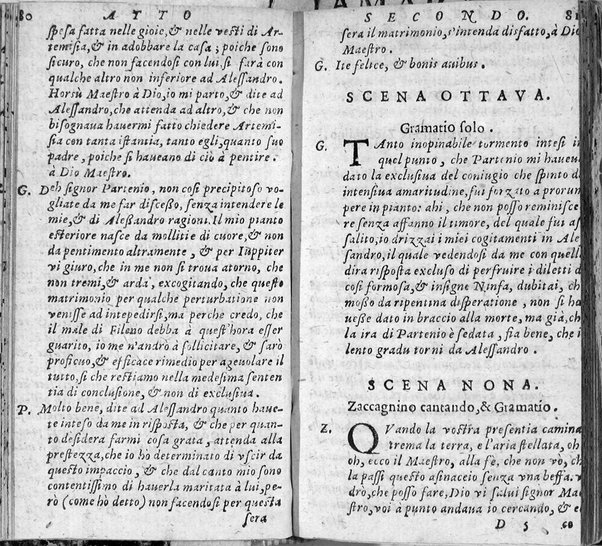 80 ATTO
spesa fatta nelle gioie, & nelle vesti di Ar-
temisia, & in adobbare la casa; poiche sono
sicuro, che non facendosi con lui, si farà con
qualche altro non inferiore ad Alessandro.
Horsù Maestro à Dio, io mi parto, & dite ad
Alessandro, che attenda ad altro, & che non
bisognaua hauermi fatto chiedere Artemi-
sia con tanta istantia, tanto egli, quanto suo
padre, poiche si haueano di ciò à pentire.
à Dio Maestro.
G. Deh signor Partenio, non così precipitoso vo-
gliate da me far discesso, senza intendere le
mie, & di Alessandro ragioni. Il mio pianto
esteriore nasce da mollitie di cuore, & non
da pentimento altramente, & per Iuppiter
vi giuro, che in me non si troua atorno, che
non tremi, & arda, excogitando, che questo
matrimonio per qualche perturbatione non
venisse ad intepedirsi, ma perche credo, che
il male di Fileno debba à quest'hora esser
guarito, io me n'andrò à sollicitare, & sarò
proficuo, & efficace rimedio per ageuolare il
tutto, si che restiamo nella medesima senten
tia di conclusione, & non di exclusiua.
P. Molto bene, dite ad Alessandro quanto haue-
te inteso da me in risposta, & che per quan-
to desidera farmi cosa grata, attenda alla
prestezza, che io hò determinato di vscir da
questo impaccio, & che dal canto mio sono
contentissimo di hauerla maritata à lui, pe-
rò (come hò detto) non facendosi per questa
sera
SECONDO. 81
sera il matrimonio, s'intenda disfatto, à Dio
Maestro.
G. Ite felice, & bonis auibus.
SCENA OTTAVA.
Gramatio solo.
G. TAnto inopinabile tormento intesi in
quel punto, che Partenio mi haueua
dato la exclusiua del coniugio che spinto da
intensiua amaritudine, fui forzato a prorum
pere in pianto: ahi, che non posso reminisce-
re senza affanno il timore, del quale fui as-
salito, io drizzai i miei cogitamenti in Ales
sandro, il quale vedendosi da me con quella
dira risposta excluso di perfruire i diletti di
così formosa, & insigne Ninfa, dubitai, che
mosso da ripentina disperatione, non si ha-
uesse dato in braccio alla morte, ma già, che
la ira di Partenio è sedata, fia bene, che io
lento gradu torni da Alessandro.
SCENA NONA.
Zaccagnino cantando, & Gramatio.
Z. QVando la vostra presentia camina
trema la terra, e l'aria stellata, oh,
oh, ecco il Maestro, alla fè, che non vò, che
la passi questo asinaccio senza vna beffa. ve
drò, che posso fare, Dio vi salui signor Mae
stro, voi à punto andaua io cercando, & ec
D 5 co